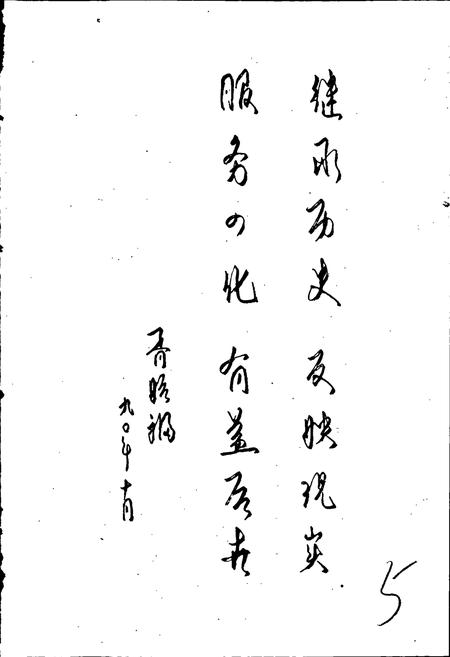 继承历史 反映现实
服务四化 有益后世
九〇年十月
5